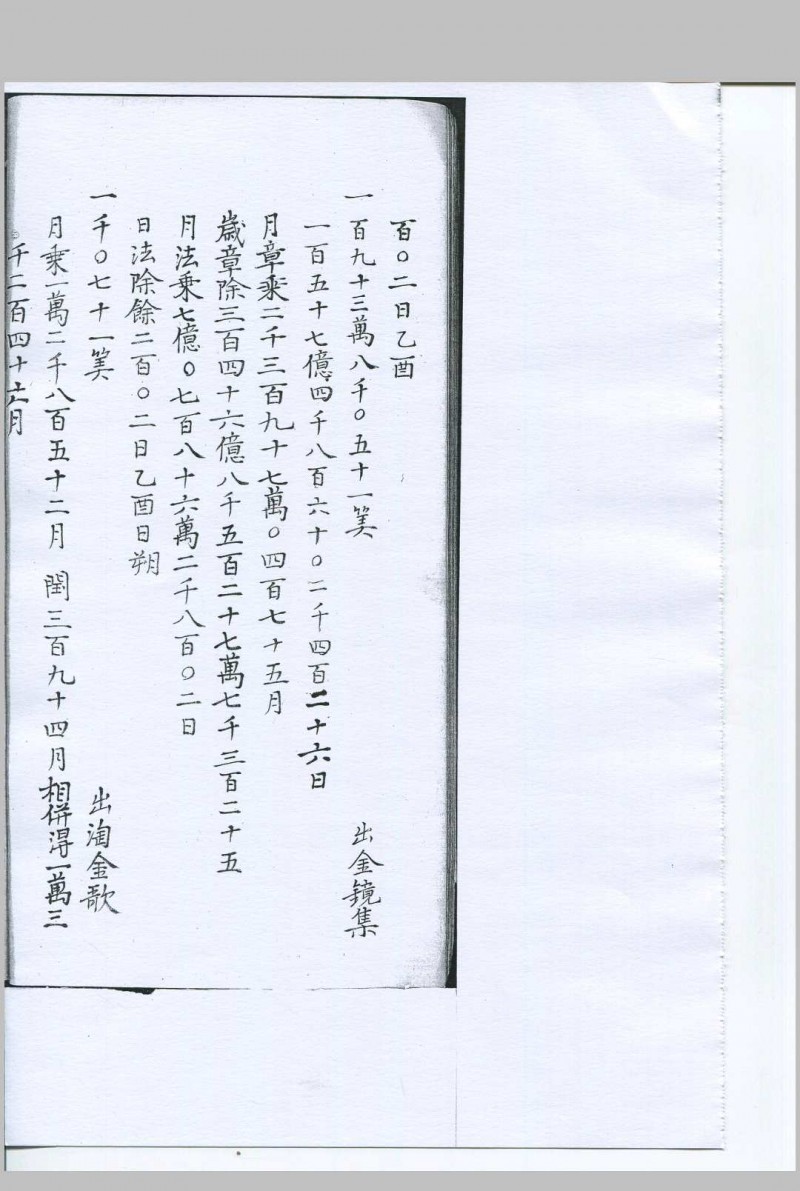 百〇二日乙酉
一百九十三萬八千〇五十一筭　出金鏡集
一百五十七億四千八百六十〇二千四百二十六日
月章乘二千三百九十七萬〇四百七十五月
歲章除三百四十六億八千五百二十七萬七千三百二十五
月法乘七億〇七百八十六萬二千八百〇二日
日法除餘二百〇二日乙酉日朔
一千〇七十一筭　出淘金歌
月乘一萬二千八百五十二月　閏三百九十四月相併得一萬三
千二百四十六月